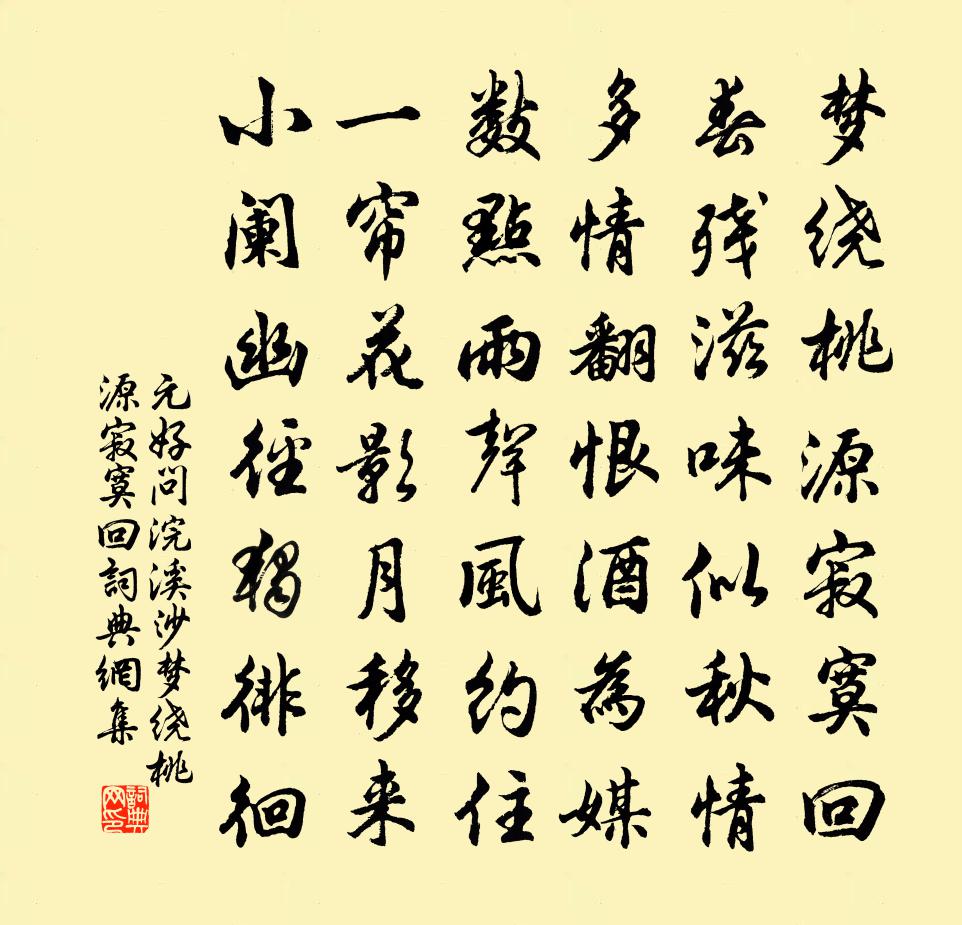 梦绕桃源寂寞回
春残滋味似秋情
多情翻恨酒為媒
数點雨聲風约住
一帘花影月移来
小阑幽径獨徘徊
元好问浣溪沙梦绕桃
源寂寞回詞典網集
詞典
网印